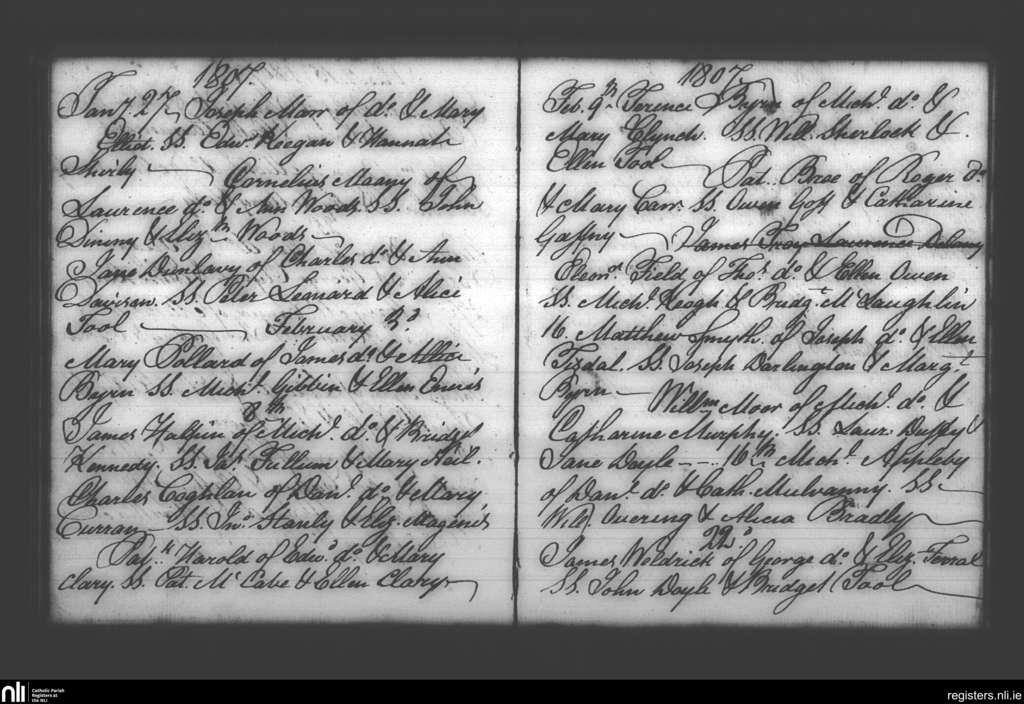 1807.
Jany. 27. Joseph Moor of do. & Mary
Elliot. SS. Edw. Keegan & Hannah
Shirly. Cornelius Maany of
Laurence do. & Ann Woods. SS. John
Dininy & Eliz.th Woods
Jane Dunlavy of Charles do. & Ann
Davison. SS. Peter Leonard & Alice
Tool February 3d
Mary Pollard of James do. & Allice
Byrn SS. Mich.l Gibbin & Ellen Ennis
8th
James Halpin of Mich.l do. & Bridget
Kennedy. SS. Jas. Fullum & Mary Neil.
Charles Coghlan of Dan.l do. & Mary
Curran SS. Jno. Stanly & Eliz. Magenis
Pat.k Harold of Edw.d do. & Mary
Clary. SS. Pat. McCabe & Ellen Clary
1807
Feb. 9th Terence Byrn of Mich.l do. &
Mary Clynch. SS. Will. Sherlock &
Ellen Tool Pat. Broe of Roger do.
& Mary Carr. SS Owen Goff & Catharine
Gaffny James Troy Lawrence Delany
Eleon.r Field of Thos. do. & Ellen Owen
SS. Mich.l Keogh & Bridg.t McLaughlin
16. Matthew Smyth. of Joseph do. & Ellen
Tizdal. SS. Joseph Darlington & Marg.t
Byrn Willm Moor of Mich.l do. &
Catharine Murphy. SS. Laur. Duffy &
Jane Doyle 16th Mich.l Appleby
of Dan.l do. & Cath. Mulvanny. SS
Wld. Overing & Alicia Bradly
22d
James Weldrick of George do. & Eliz.
SS. John Doyle & Bridget Tool
nli Catholic Parish
Registers at
the NLI
registers.nli.ie